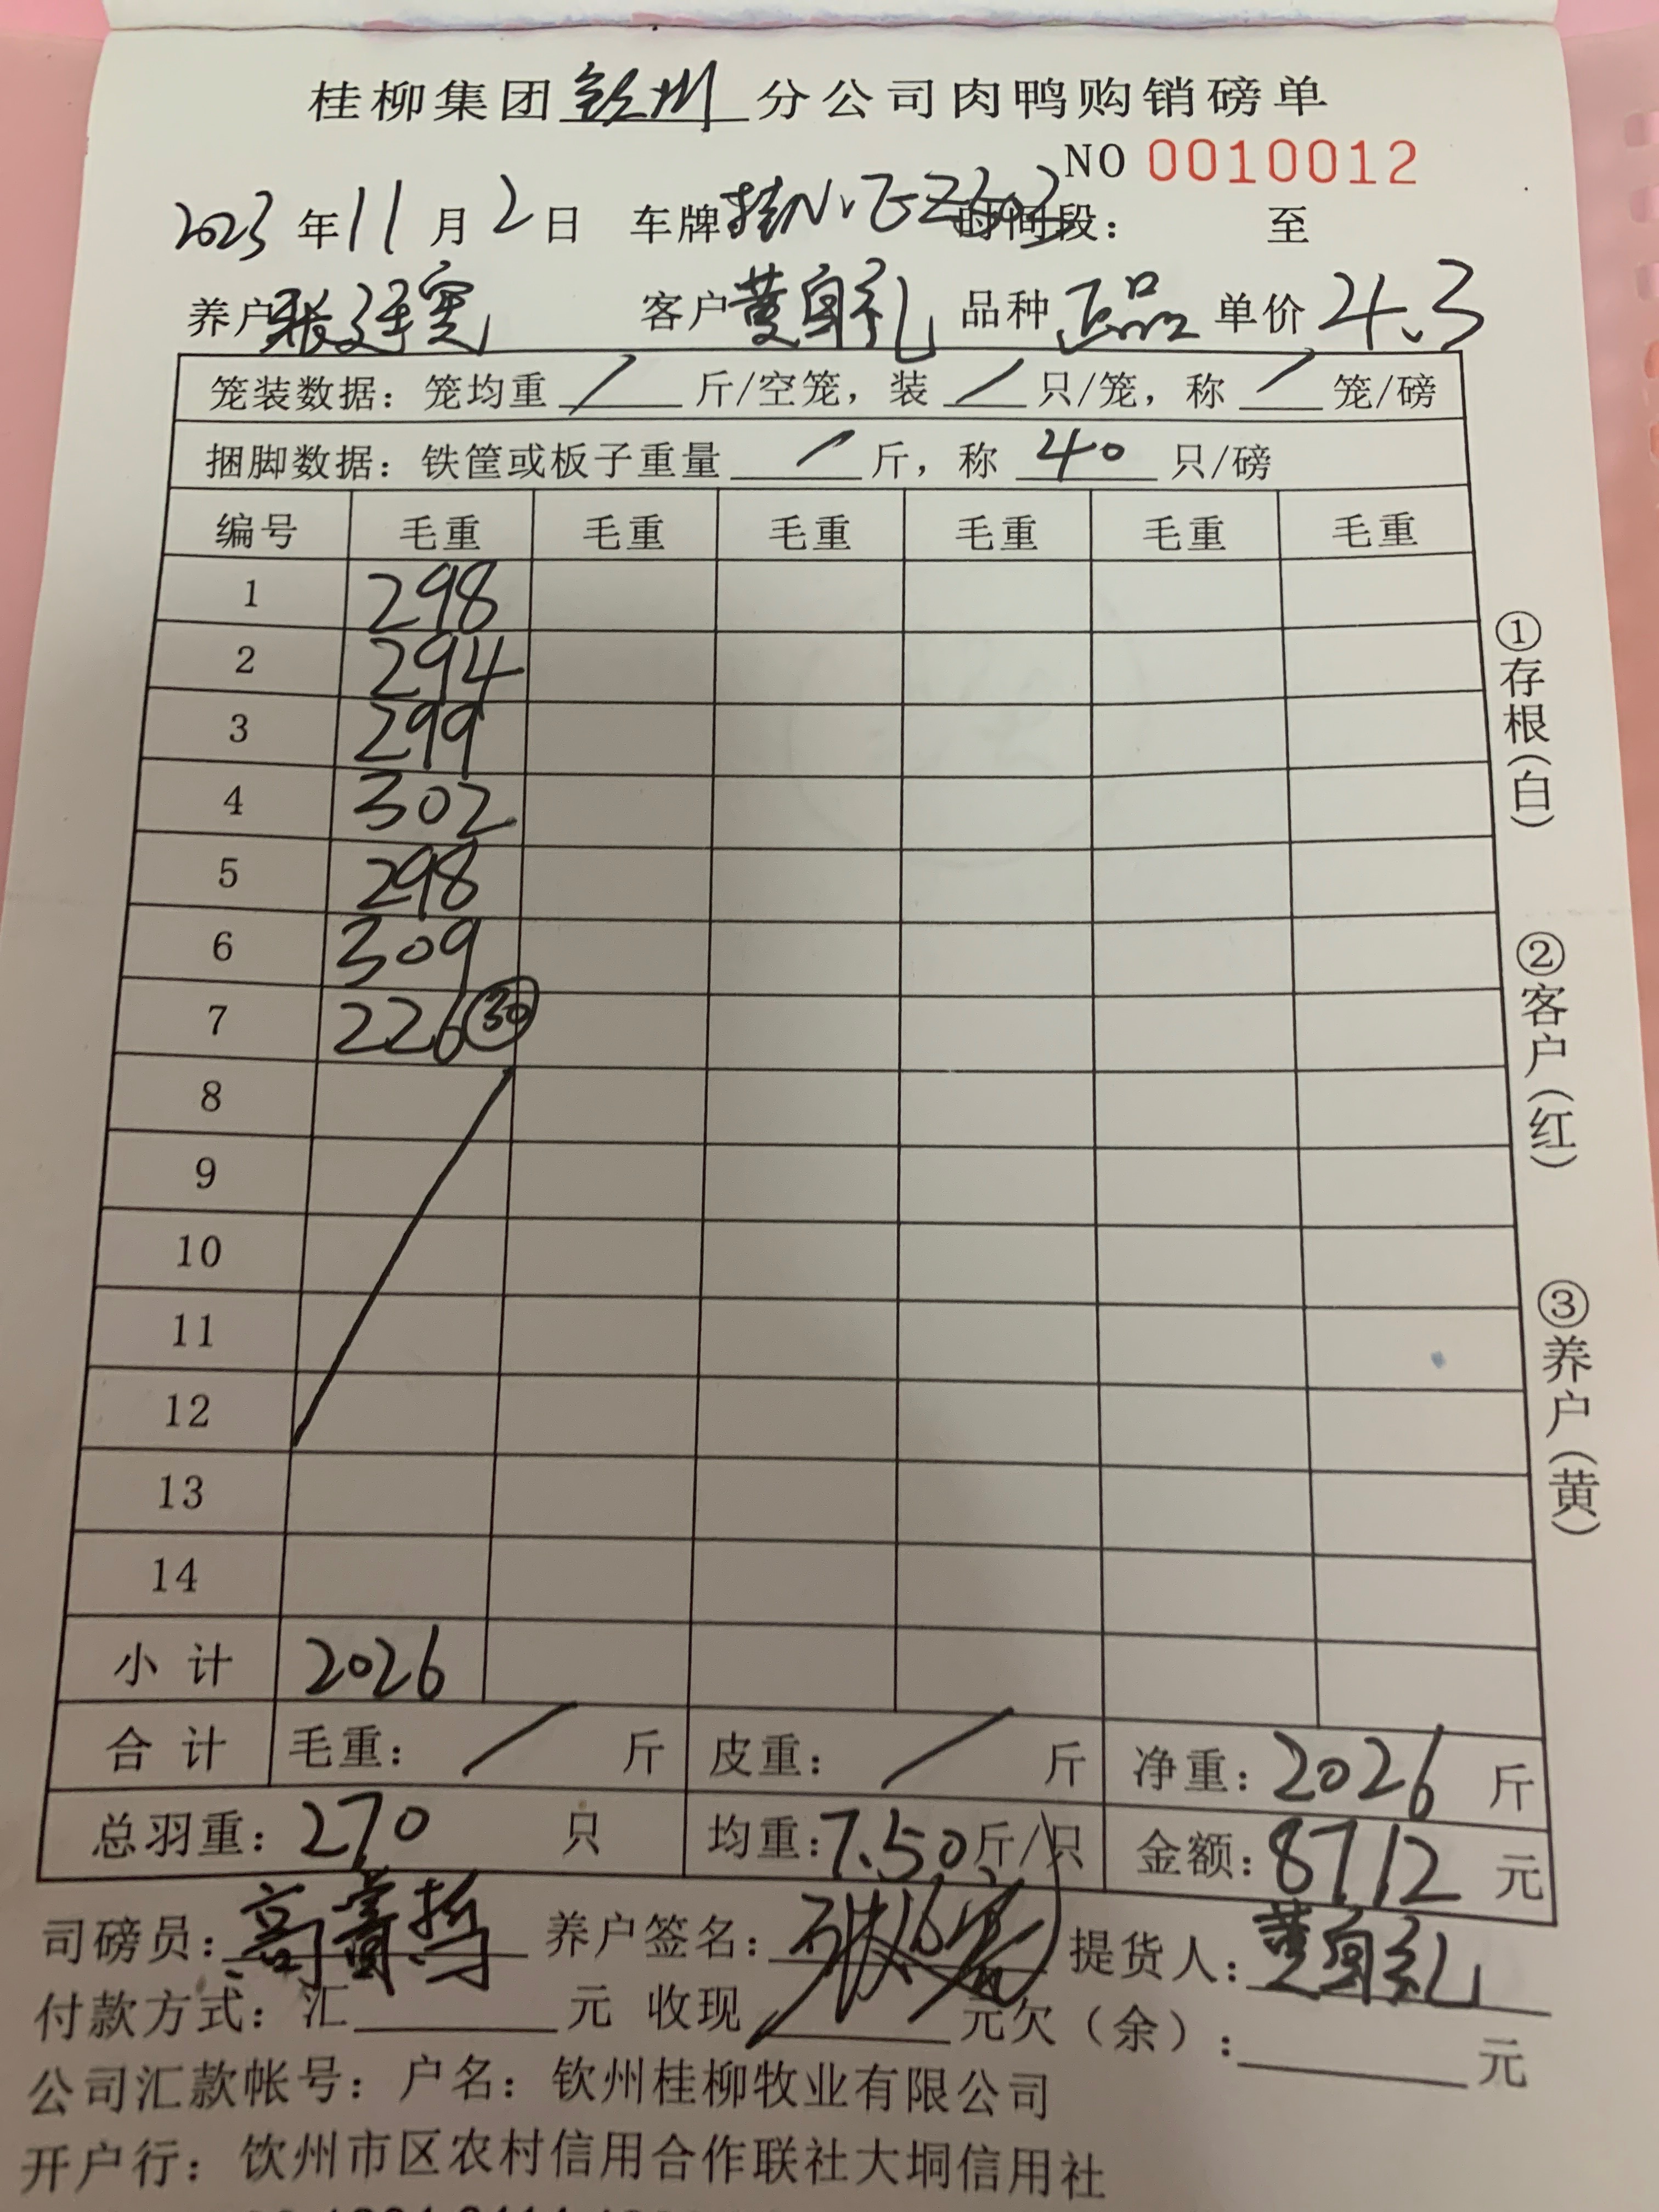 桂柳集团钦州分公司肉鸭购销磅单
NO 0010012
2023年11月2日 车牌桂N 时间段： 至
养户张 客户黄 礼 品种正品 单价4.3
笼装数据：笼均重 / 斤/空笼，装 / 只/笼，称 / 笼/磅
捆脚数据：铁筐或板子重量 / 斤，称 40 只/磅
编号 毛重 毛重 毛重 毛重 毛重 毛重
1 298
2 294
3 299
4 302
5 298
6 309
7 226 30
8
9
10
11
12
13
14
小计 2026
合计 毛重： / 斤 皮重： / 斤 净重：2026 斤
总羽重：270 只 均重：7.50斤/只 金额：8712 元
司磅员：高 养户签名： 提货人：黄 礼
付款方式：汇 元 收现 元欠（余）： 元
公司汇款帐号：户名：钦州桂柳牧业有限公司
开户行：钦州市区农村信用合作联社大垌信用社
①存根（白）
②客户（红）
③养户（黄）